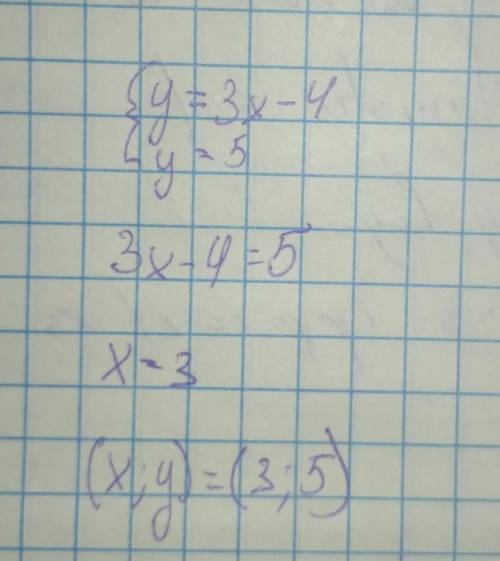 {y = 3x - 4
y = 5
3x - 4 = 5
x = 3
(x; y) = (3; 5)